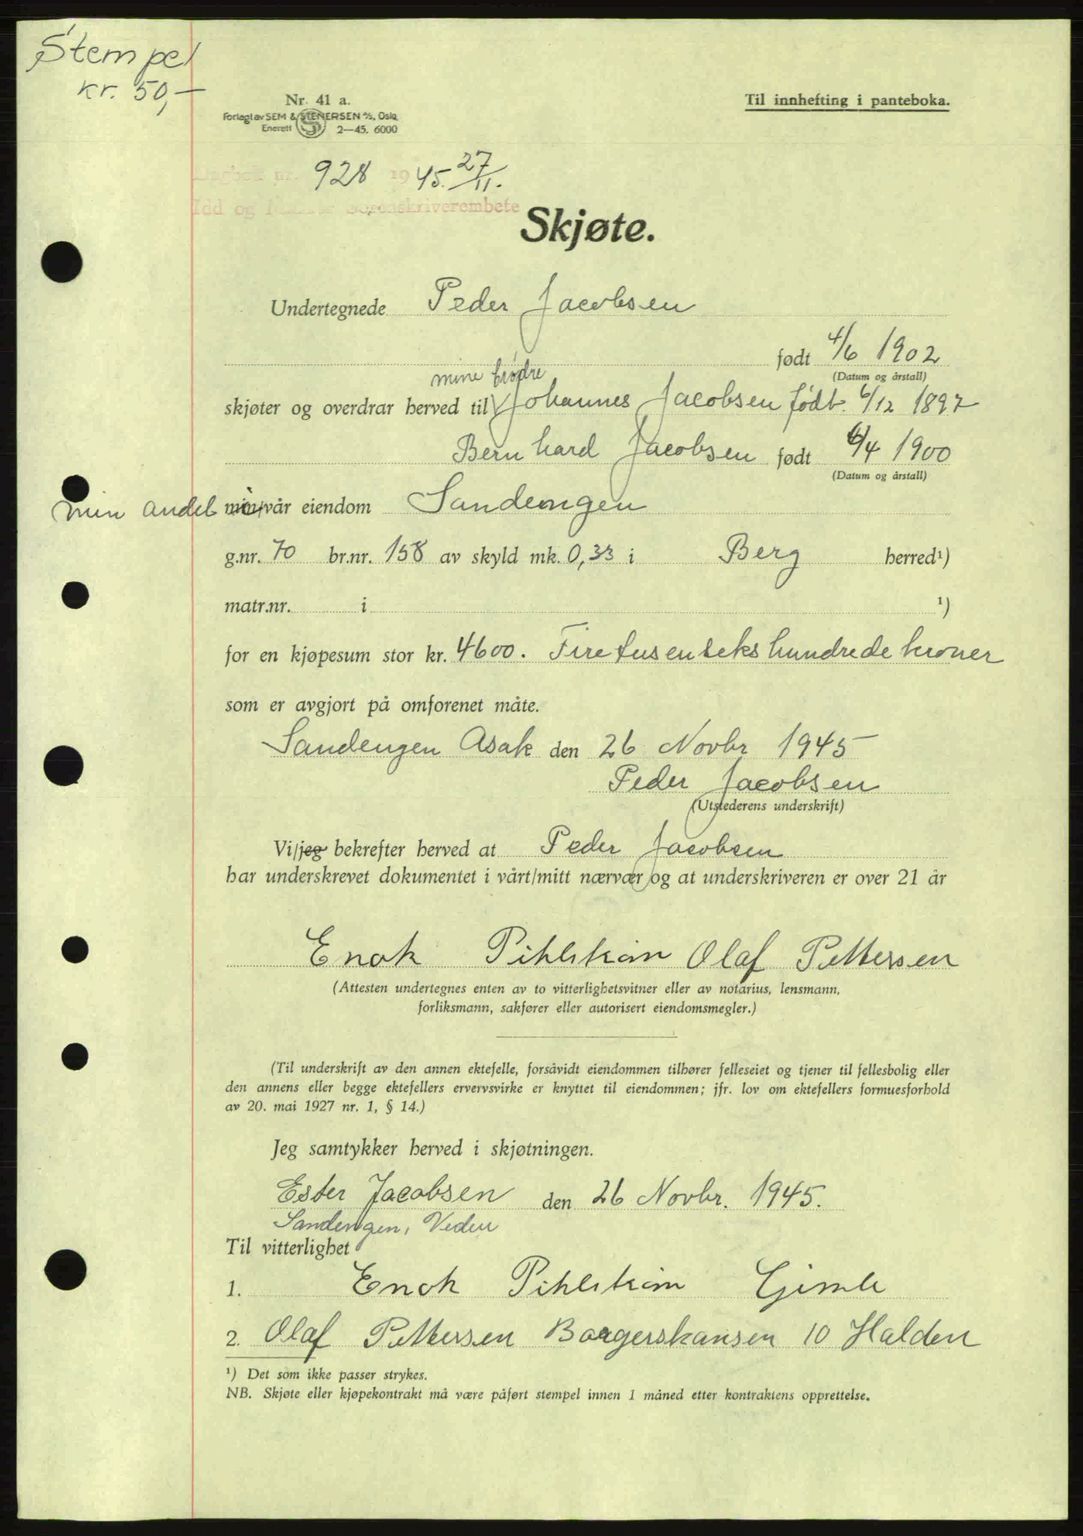 Stempel
kr. 50,-
Nr. 41 a.
Til innhefting i panteboka.
Forlagt av SEM & STENERSEN A/S, Oslo
Enerett 2—45. 6000
Dagbok nr. 928 1945. 27/11.
Idd og Marker Sorenskriverembete
Skjøte.
Undertegnede Peder Jacobsen
født 4/6 1902
(Datum og årstall)
mine brødre
skjøter og overdrar herved til Johannes Jacobsen født. 6/12 1897
Bernhard Jacobsen født 6/4 1900
(Datum og årstall)
min andel i min/vår eiendom Sandengen
g.nr. 70 br.nr. 158 av skyld mk. 0,33 i Berg herred¹)
matr.nr. i ¹)
for en kjøpesum stor kr. 4600. Firetusensekshundrede kroner
som er avgjort på omforenet måte.
Sandengen Asak den 26 Novbr 1945
Peder Jacobsen
(Utstederens underskrift)
Vi/jeg bekrefter herved at Peder Jacobsen
har underskrevet dokumentet i vårt/mitt nærvær og at underskriveren er over 21 år
Enok Pihlstrøm Olaf Pettersen
(Attesten undertegnes enten av to vitterlighetsvitner eller av notarius, lensmann,
forliksmann, sakfører eller autorisert eiendomsmegler.)
(Til underskrift av den annen ektefelle, forsåvidt eiendommen tilhører felleseiet og tjener til fellesbolig eller
den annens eller begge ektefellers ervervsvirke er knyttet til eiendommen; jfr. lov om ektefellers formuesforhold
av 20. mai 1927 nr. 1, § 14.)
Jeg samtykker herved i skjøtningen.
Ester Jacobsen den 26 Novbr. 1945.
Sandengen, Veden
Til vitterlighet
1. Enok Pihlstrøm Gimle
2. Olaf Pettersen Borgerskansen 10 Halden
¹) Det som ikke passer strykes.
NB. Skjøte eller kjøpekontrakt må være påført stempel innen 1 måned etter kontraktens opprettelse.